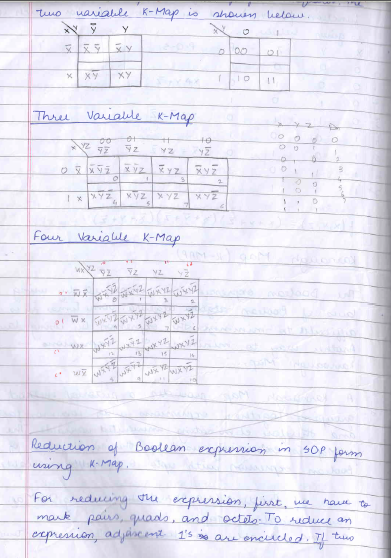 two variable K-Map is shown below.
X Y Ȳ Y
X̄ X̄ Ȳ X̄ Y
X XȲ XY
X Y 0 1
0 00 01
1 10 11
Three Variable K-Map
X YZ 00 01 11 10
ȲZ̄ ȲZ YZ YZ̄
0 X̄ X̄ȲZ̄ X̄ȲZ X̄YZ X̄YZ̄
0 1 3 2
1 X XȲZ̄ XȲZ XYZ XYZ̄
4 5 7 6
X Y Z Dn
0 0 0 0
0 0 1 1
0 1 0 2
0 1 1 3
1 0 0 4
1 0 1 5
Four Variable K-Map
WX YZ ȲZ̄ ȲZ YZ YZ̄
W̄X̄ W̄X̄ȲZ̄ W̄X̄ȲZ W̄X̄YZ W̄X̄YZ̄
0 1 3 2
W̄X W̄XȲZ̄ W̄XȲZ W̄XYZ W̄XYZ̄
WX WXȲZ̄ WXȲZ WXYZ WXYZ̄
12 13 15
WX̄ WX̄ȲZ̄ WX̄ȲZ WX̄YZ WX̄YZ̄
Reduction of Boolean expression in SOP form
using K-Map.
For reducing the expression, first, we have to
mark pairs, quads, and octets. To reduce an
expression, adjacent 1's are encircled. If two